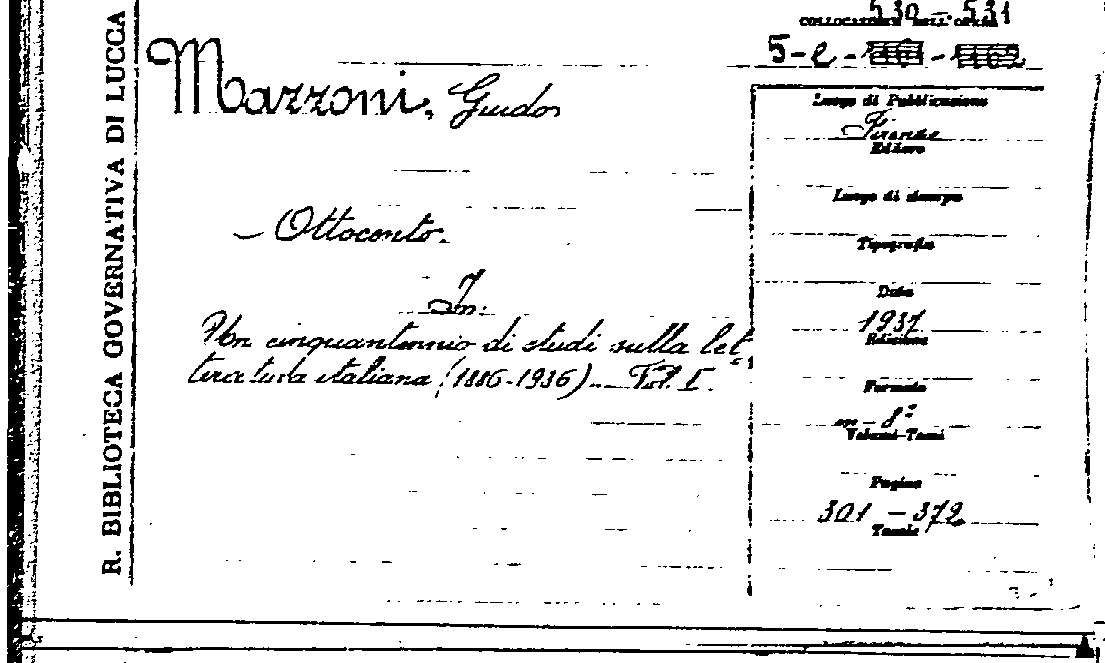 R. BIBLIOTECA GOVERNATIVA DI LUCCA
530 - 531
COLLOCAZIONE DELL'OPERA
5-e-
Mazzoni, Guido
- Ottocento.
In:
Un cinquantennio di studi sulla let-
teratura italiana (1886-1936). Vol. I.
Luogo di Pubblicazione
Firenze
Editore
Luogo di stampa
Tipografia
Data
1937
Edizione
Formato
in - 8°
Volumi-Tomi
Pagine
301 - 372
Tavole